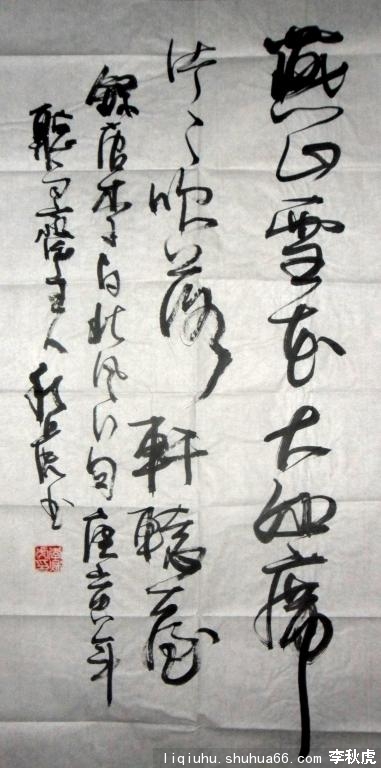 燕山雪花大如席
片々吹落軒轅臺
錄唐李白北風行句 庚寅年
聽雪齋主人 秋虎书
liqiuhu.shuhua66.com 李秋虎